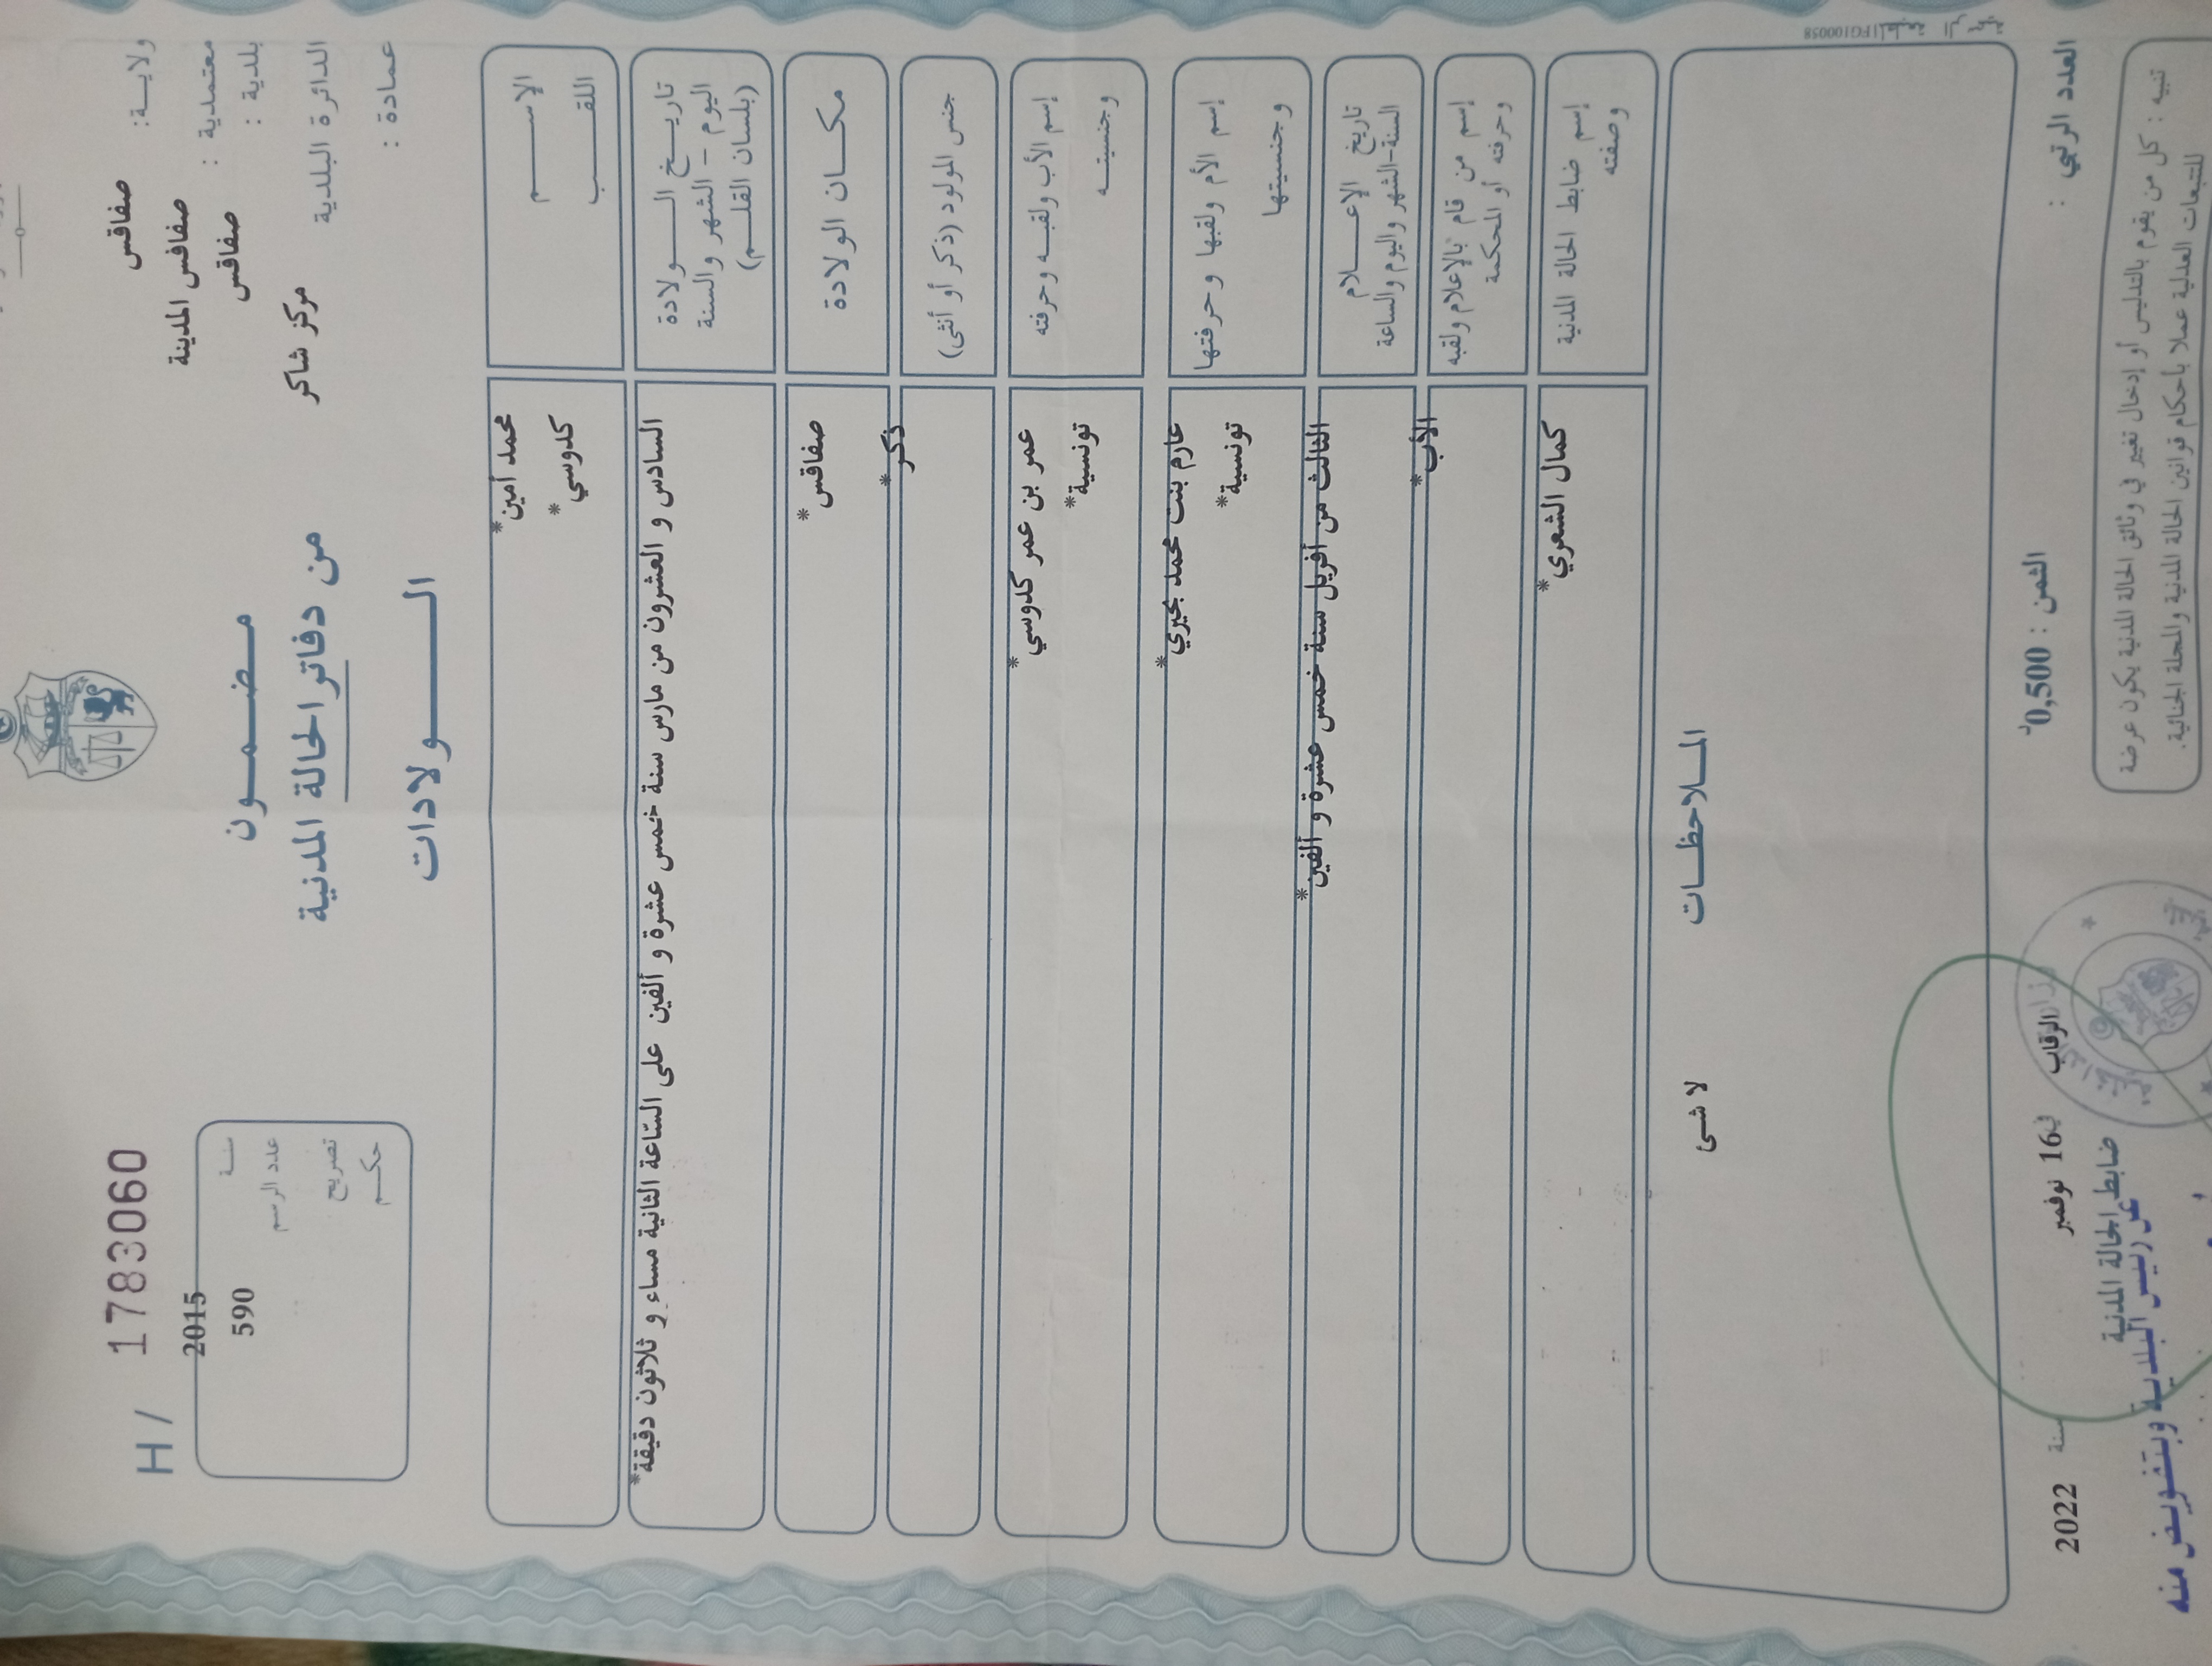 ولايـة: صفاقس
معتمدية : صفاقس المدينة
بلدية : صفاقس
الدائرة البلدية مركز شاكر
عمادة :
H / 1783060
سنـة 2015
عدد الرسم 590
تصريح
حكـم
مـضـمـون
من دفاتر الحالة المدنية
الـــولادات
الإســـم محمد أمين*
اللقـــب كدوسي*
تاريـخ الـــولادة السادس و العشرون من مارس سنة خمس عشرة و ألفين على السّاعة الثانية مساء و ثلاثون دقيقة*
اليوم - الشهر والسنة
(بلسان القلـم)
مكـان الولادة صفاقس*
جنس المولود (ذكر أو أنثى) ذكر*
إسم الأب ولقبـه وحرفته عمر بن عمر كدوسي*
وجنسيتـه تونسية*
إسم الأم ولقبها وحرفتها عارم بنت محمد بحيري*
وجنسيتها تونسية*
تاريخ الإعـــلام الثالث من أفريل سنة خمس عشرة و ألفين*
السنة-الشهر واليوم والساعة
إسم من قام بالإعلام ولقبه الأب*
وحرفته أو المحكمة
إسم ضابط الحالة المدنية كمال الشعري*
وصفته
الملاحظـات
لا شى
العدد الرتبي :
الثمن : 0,500د
الرقاب في 16 نوفمبر سنة 2022
ضابط الحالة المدنية
عن رئيس البلدية وبتفويض منه
تنبيه : كل من يقوم بالتدليس أو إدخال تغيير في وثائق الحالة المدنية يكون عرضة
للتتبعات العدلية عملا بأحكام قوانين الحالة المدنية والمجلة الجنائية.